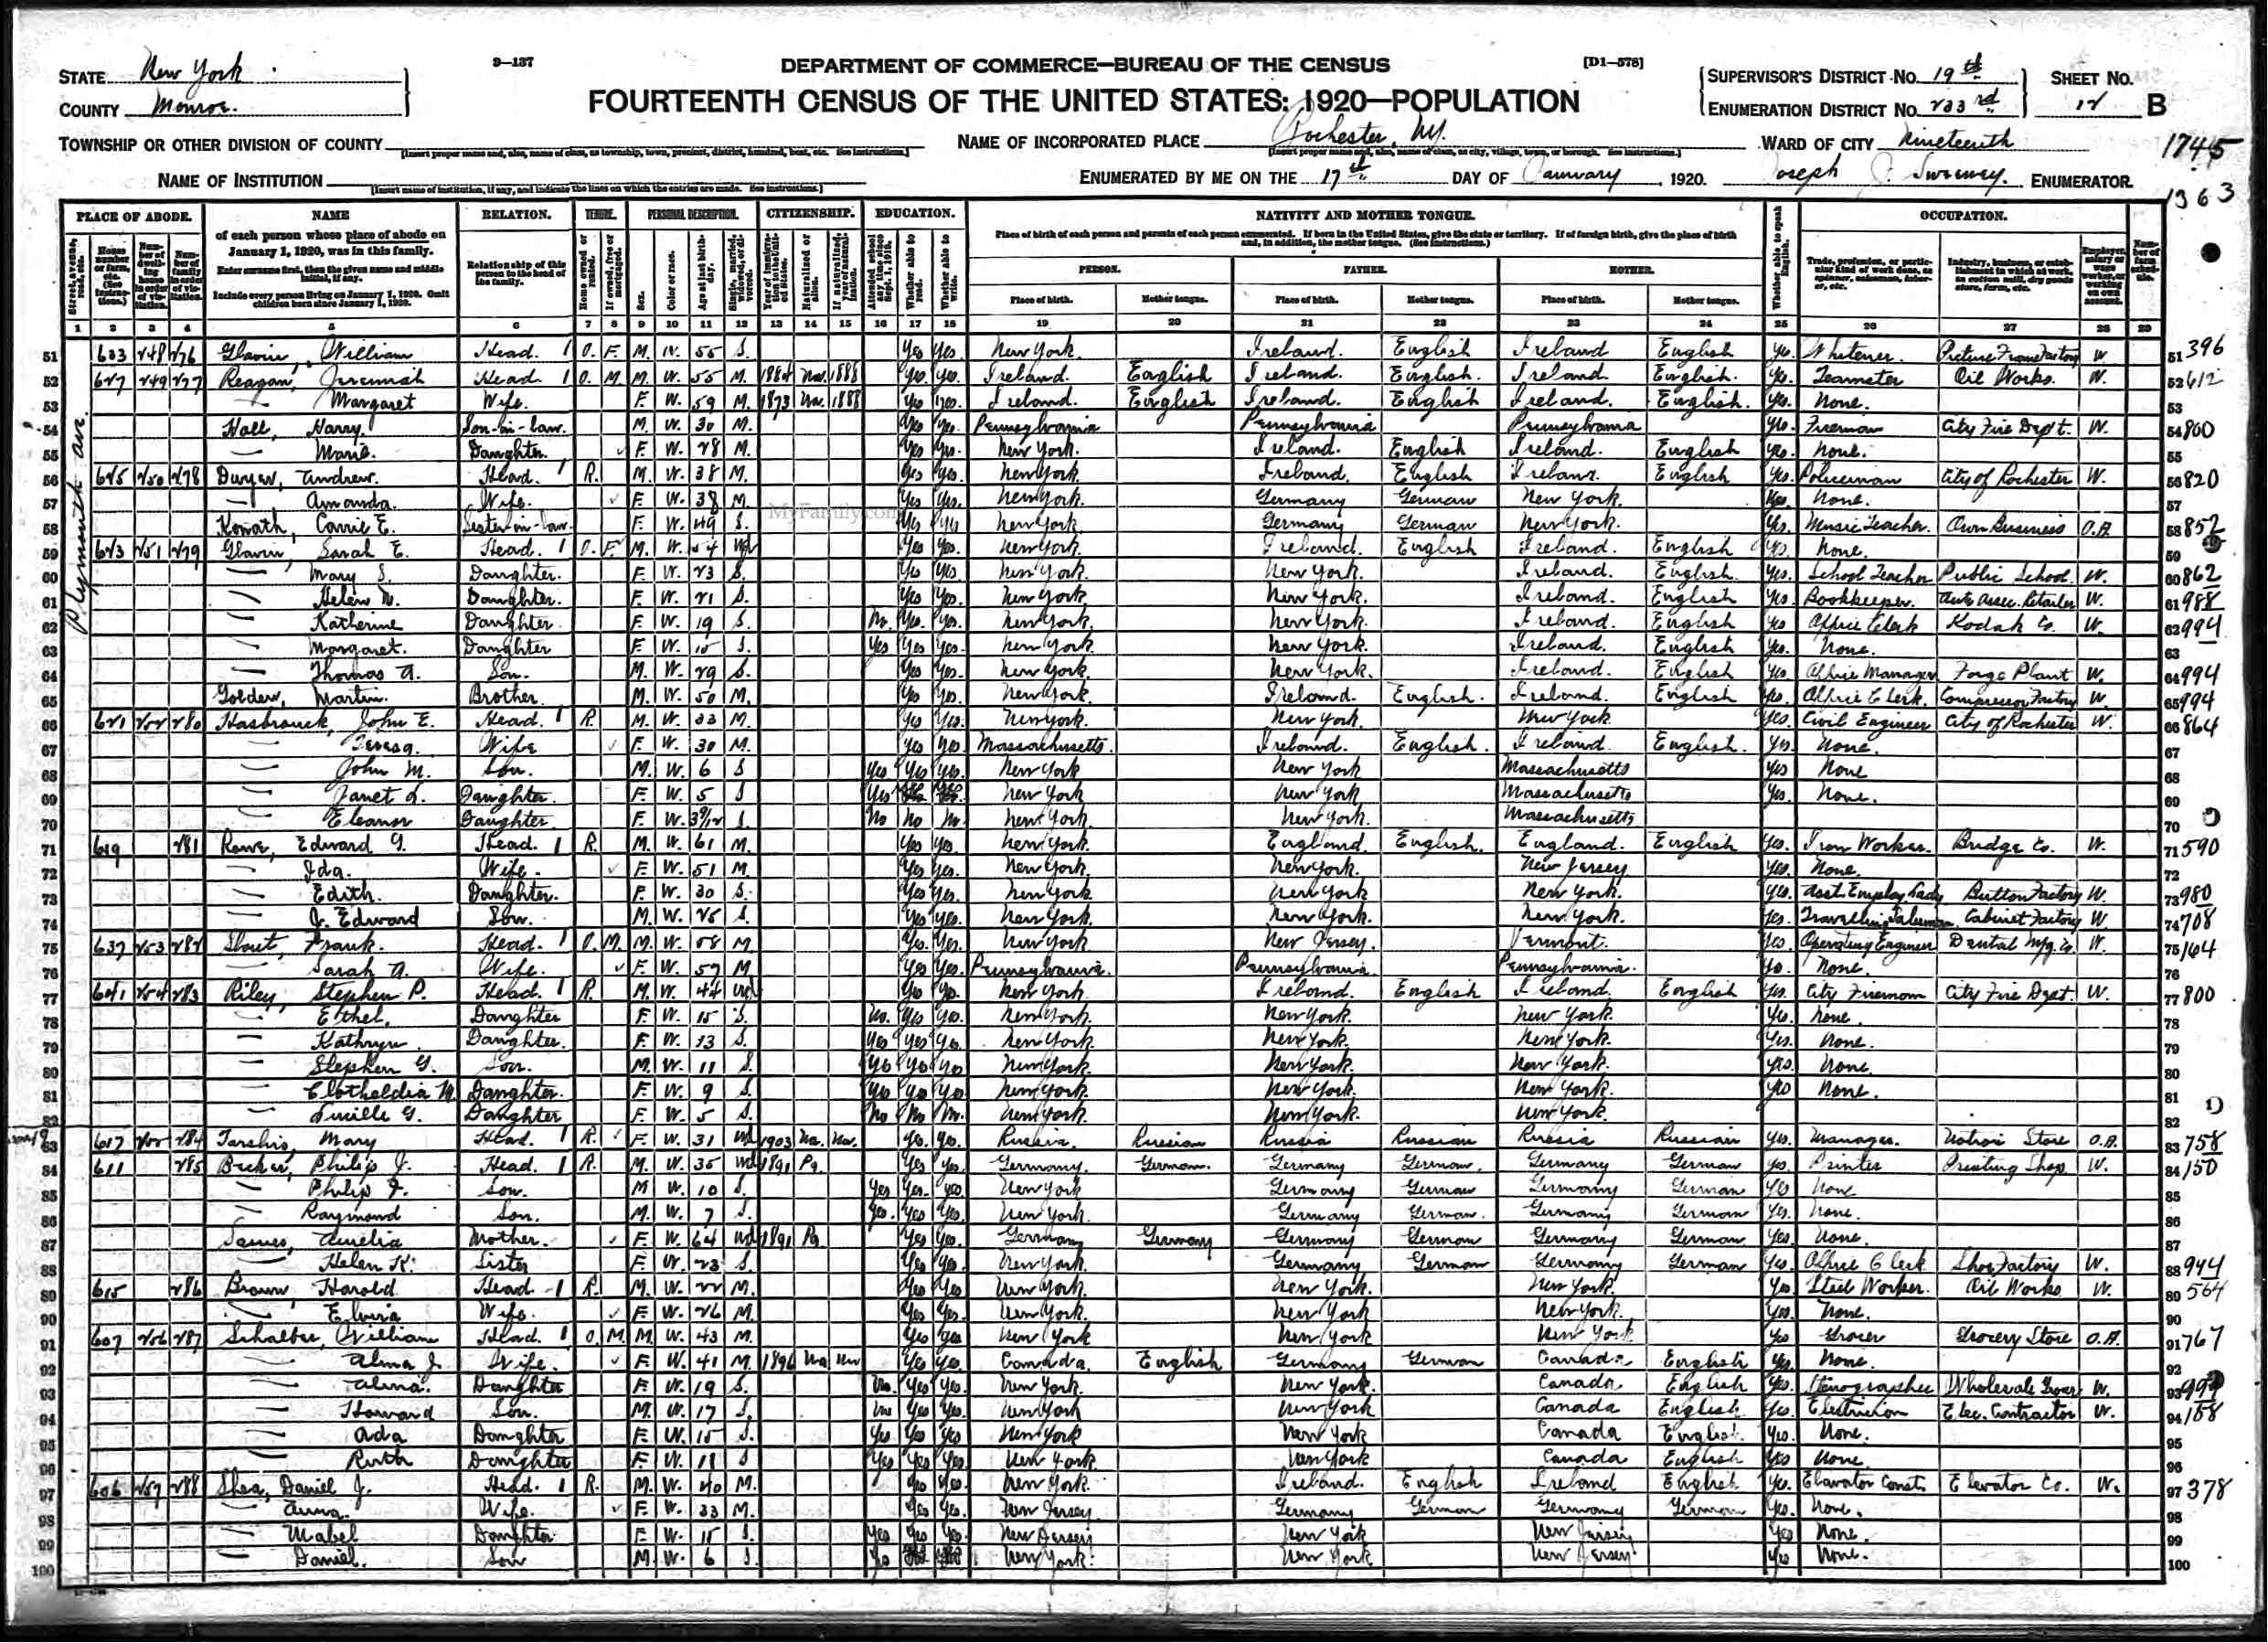 9—137
DEPARTMENT OF COMMERCE—BUREAU OF THE CENSUS
[D1—578]
STATE New York
COUNTY Monroe.
FOURTEENTH CENSUS OF THE UNITED STATES: 1920—POPULATION
SUPERVISOR'S DISTRICT No. 19th
ENUMERATION DISTRICT No. 233rd
SHEET No. 12 B
TOWNSHIP OR OTHER DIVISION OF COUNTY
NAME OF INCORPORATED PLACE Rochester, N.Y.
WARD OF CITY Nineteenth
1745
NAME OF INSTITUTION
ENUMERATED BY ME ON THE 17th DAY OF January, 1920. Joseph J. Sweeney. ENUMERATOR.
1363
PLACE OF ABODE. NAME RELATION. TENURE. PERSONAL DESCRIPTION. CITIZENSHIP. EDUCATION. NATIVITY AND MOTHER TONGUE. OCCUPATION.
of each person whose place of abode on January 1, 1920, was in this family.
Enter surname first, then the given name and middle initial, if any.
Include every person living on January 1, 1920. Omit children born since January 1, 1920.
Relationship of this person to the head of the family.
Place of birth of each person and parents of each person enumerated. If born in the United States, give the state or territory. If of foreign birth, give the place of birth and, in addition, the mother tongue. (See Instructions.)
PERSON. FATHER. MOTHER.
Place of birth. Mother tongue. Place of birth. Mother tongue. Place of birth. Mother tongue.
1 2 3 4 5 6 7 8 9 10 11 12 13 14 15 16 17 18 19 20 21 22 23 24 25 26 27 28 29
Plymouth Ave
51 633 248 276 Glavin, William Head. 1 O. F. M. W. 55 S. Yes Yes. New York. Ireland. English Ireland English Yes. Whitener. Picture Frame Factory W. 51 396
52 627 249 277 Reagan, Jeremiah Head. 1 O. M. M. W. 55 M. 1884 Na. 1888 Yes. Yes. Ireland. English Ireland. English. Ireland. English. Yes. Teamster Oil Works. W. 52 612
53 — Margaret Wife. F. W. 59 M. 1873 Na. 1888 Yes Yes. Ireland. English Ireland. English Ireland. English. Yes. None. 53
54 Hall, Harry Son-in-law. M. W. 30 M. Yes Yes. Pennsylvania Pennsylvania Pennsylvania Yes. Fireman City Fire Dept. W. 54 800
55 — Marie. Daughter F. W. 28 M. Yes Yes. New York. Ireland. English Ireland. English Yes. None. 55
56 625 250 278 Dwyer, Andrew. Head. 1 R. M. W. 38 M. Yes Yes. New York. Ireland. English Ireland. English Yes. Policeman City of Rochester W. 56 820
57 — Amanda. Wife. F. W. 38 M. Yes Yes. New York. Germany German New York. Yes. None. 57
58 Konath, Carrie E. Sister-in-law. F. W. 49 S. Yes Yes New York. Germany German New York. Yes. Music Teacher. Own Business O.A. 58 852
59 623 251 279 Glavin, Sarah E. Head. 1 O. F. M. W. 54 Wd Yes Yes. New York. Ireland. English Ireland. English Yes. None. 59
60 — Mary S. Daughter. F. W. 23 S. Yes Yes. New York. New York. Ireland. English. Yes. School Teacher Public School. W. 60 862
61 — Helen N. Daughter. F. W. 21 S. Yes Yes. New York. New York. Ireland. English Yes. Bookkeeper. Auto Assec. Retailer W. 61 988
62 — Katherine Daughter. F. W. 19 S. No. Yes. Yes. New York. New York. Ireland. English Yes Office Clerk Kodak Co. W. 62 994
63 — Margaret. Daughter F. W. 15 S. Yes Yes Yes. New York. New York. Ireland. English Yes. None. 63
64 — Thomas A. Son. M. W. 29 S. Yes Yes. New York. New York. Ireland. English Yes. Office Manager Forge Plant W. 64 994
65 Golden, Martin. Brother. M. W. 50 M. Yes Yes. New York. Ireland English. Ireland. English Yes. Office Clerk. Compressor Factory W. 65 994
66 621 252 280 Hasbrouck, John E. Head. 1 R. M. W. 33 M. Yes Yes. New York. New York. New York Yes. Civil Engineer City of Rochester W. 66 864
67 — Teresa. Wife F. W. 30 M. Yes Yes Massachusetts. Ireland. English. Ireland. English. Yes. None. 67
68 — John M. Son. M. W. 6 S Yes Yes Yes. New York New York Massachusetts Yes None 68
69 — Janet L. Daughter. F. W. 5 S Yes New York New York Massachusetts Yes. None. 69
70 — Eleanor Daughter. F. W. 3 9/12 S. No No No. New York. New York. Massachusetts 70
71 619 281 Rowe, Edward G. Head. 1 R. M. W. 61 M. Yes Yes. New York. England. English. England. English Yes. Iron Worker. Bridge Co. W. 71 590
72 — Ida. Wife. F. W. 51 M. Yes Yes. New York. New York. New Jersey Yes. None. 72
73 — Edith. Daughter. F. W. 30 S. Yes Yes. New York. New York New York. Yes. Asst. Employ. Lady Button Factory W. 73 980
74 — J. Edward Son. M. W. 25 S. Yes Yes. New York. New York. New York. Yes. Travelling Salesman Cabinet Factory W. 74 708
75 637 253 282 Stout, Frank. Head. 1 O. M. M. W. 58 M. Yes. Yes. New York New Jersey. Vermont. Yes. Operating Engineer Dental Mfg. Co. W. 75 164
76 — Sarah A. Wife. F. W. 57 M Yes Yes. Pennsylvania. Pennsylvania. Pennsylvania. Yes. None. 76
77 641 254 283 Riley, Stephen P. Head. 1 R. M. W. 44 Wd Yes Yes. New York Ireland. English Ireland English Yes. City Fireman City Fire Dept. W. 77 800
78 — Ethel. Daughter F. W. 15 S. No. Yes Yes. New York. New York. New York. Yes. None. 78
79 — Kathryn. Daughter. F. W. 13 S. Yes Yes Yes. New York. New York. New York. Yes. None. 79
80 — Stephen G. Son. M. W. 11 S. Yes Yes Yes New York. New York. New York. Yes. None. 80
81 — Clotheldia M. Daughter. F. W. 9 S. Yes Yes Yes New York. New York. New York. Yes None. 81
82 — Lucille G. Daughter F. W. 5 S. No No No. New York. New York. New York. 82
83 617 255 284 Tarshis, Mary Head. 1 R. F. W. 31 Wd 1903 Na. Yes. Yes. Russia. Russian Russia Russian Russia Russian Yes. Manager. Notion Store O.A. 83 758
84 611 285 Becker, Philip J. Head. 1 R. M. W. 35 Wd 1891 Pa. Yes Yes. Germany. German. Germany German. Germany German Yes. Printer Printing Shop W. 84 150
85 — Philip F. Son. M W. 10 S. Yes Yes. Yes. New York Germany German Germany German Yes None 85
86 — Raymond Son. M. W. 7 S. Yes. Yes Yes. New York. Germany German. Germany German Yes. None. 86
87 Amelia Mother. F. W. 64 Wd 1891 Pa. Yes Yes. Germany Germany Germany German Germany German Yes. None. 87
88 — Helen K. Sister F. W. 23 S. Yes Yes. New York. Germany German Germany German Yes. Office Clerk Shoe Factory W. 88 944
89 615 286 Brown, Harold Head. 1 R. M. W. 22 M. Yes Yes. New York. New York. New York. Yes Steel Worker. Oil Works W. 89 564
90 — Elvira Wife. F. W. 26 M. Yes Yes. New York. New York New York. Yes. None. 90
91 607 256 287 Schalber, William Head. 1 O. M. M. W. 43 M. Yes Yes New York New York New York Yes Grocer Grocery Store O.A. 91 767
92 — Alma J. Wife. F. W. 41 M. 1896 Na Yes Yes. Canada. English Germany German Canada English Yes. None. 92
93 — Alma. Daughter F. W. 19 S. No. Yes Yes. New York. New York. Canada. English Yes. Stenographer Wholesale Grocer W. 93
94 — Howard Son. M. W. 17 S. No Yes Yes. New York New York Canada English. Yes. Electrician Elec. Contractor W. 94 158
95 — Ada Daughter F. W. 15 S. Yes Yes Yes New York New York Canada English. Yes. None. 95
96 — Ruth Daughter F. W. 11 S Yes Yes Yes. New York. New York Canada English Yes None. 96
97 606 257 288 Shea, Daniel J. Head. 1 R. M. W. 40 M. Yes Yes. New York. Ireland. English Ireland English Yes. Elavator Const. Elevator Co. W. 97 378
98 — Anna. Wife. F. W. 33 M. Yes Yes. New Jersey. Germany German Germany German Yes. None. 98
99 — Mabel Daughter F. W. 15 S. Yes Yes Yes. New Jersey New York New Jersey Yes None. 99
100 — Daniel. Son M. W. 6 S. Yes New York. New York New Jersey Yes None. 100
MyFamily.com